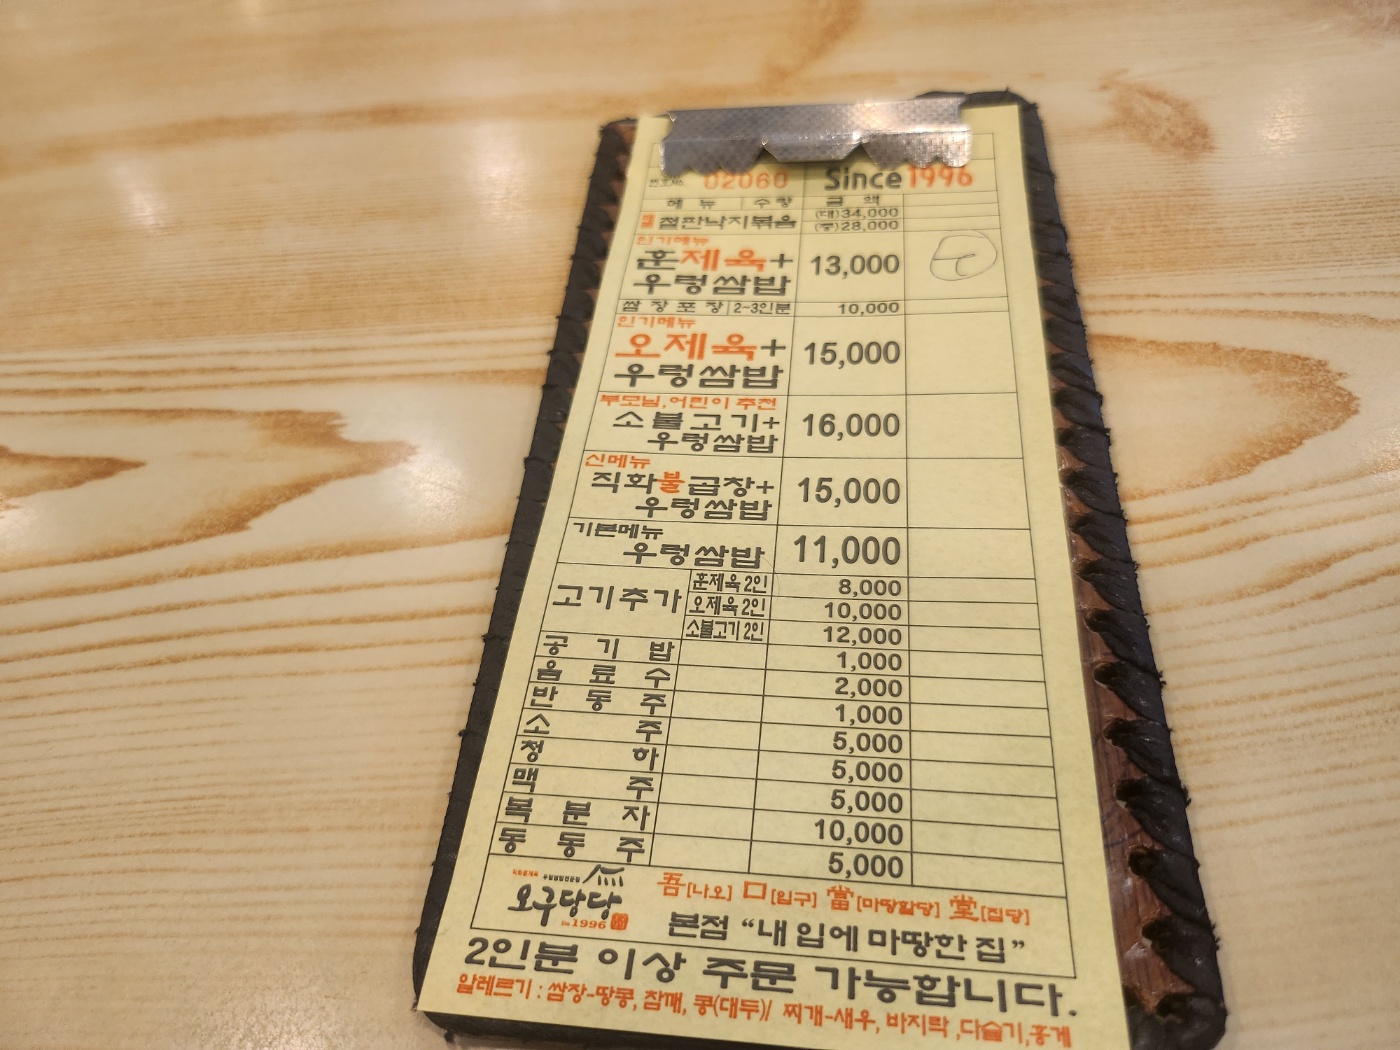 02060 Since 1996
메뉴 수량 금액
철판낙지볶음 (대)34,000
(중)28,000
인기메뉴
훈제육+ 13,000
우렁쌈밥
쌈장포장 2~3인분 10,000
인기메뉴
오제육+ 15,000
우렁쌈밥
부모님,어린이 추천
소불고기+ 16,000
우렁쌈밥
신메뉴
직화불곱창+ 15,000
우렁쌈밥
기본메뉴
우렁쌈밥 11,000
고기추가 훈제육 2인 8,000
오제육 2인 10,000
소불고기 2인 12,000
공기밥 1,000
음료수 2,000
반동주 1,000
소주 5,000
청하 5,000
맥주 5,000
복분자 10,000
동동주 5,000
오구당당
1996
吾[나오] 口[입구] 當[마땅할당] 堂[집당]
본점 “내 입에 마땅한 집”
2인분 이상 주문 가능합니다.
알레르기 : 쌈장-땅콩, 참깨, 콩(대두)/ 찌개-새우, 바지락 ,다슬기,홍게